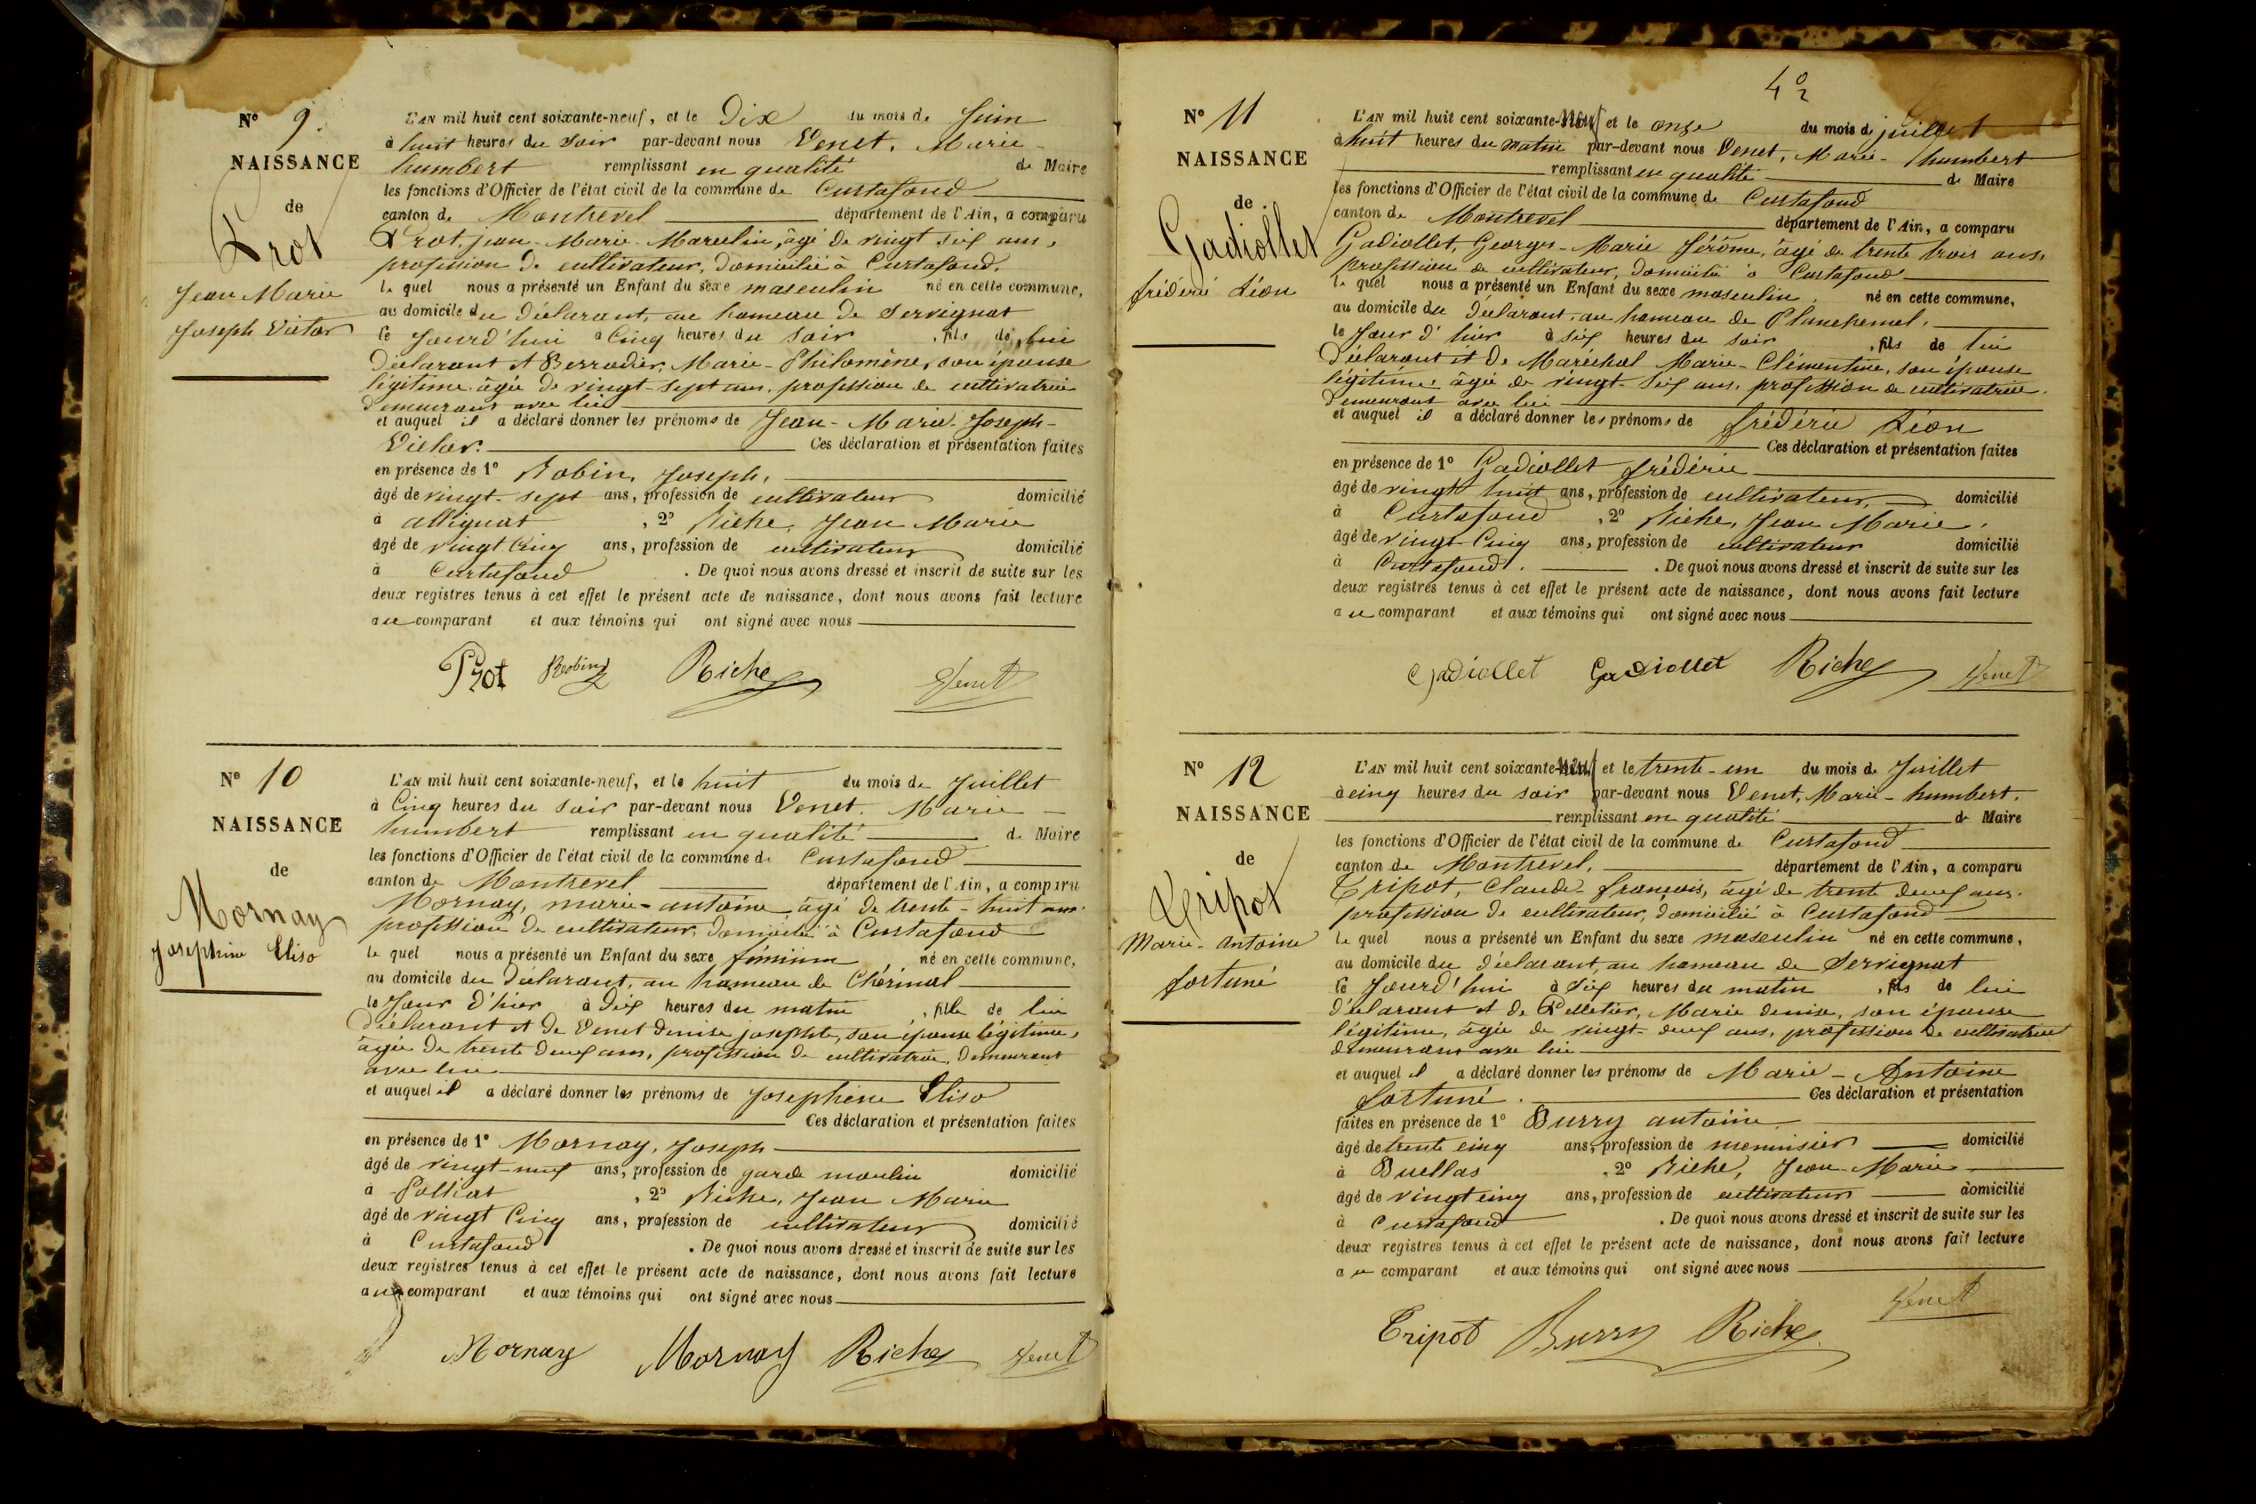 N° 9.
NAISSANCE
de
Prot
Jean Marie
Joseph Victor
L'AN mil huit cent soixante-neuf, et le Dix du mois de Juin
à huit heures du soir par-devant nous Venet, Marie-
humbert remplissant en qualité de Maire
les fonctions d'Officier de l'état civil de la commune de Curtafond
canton de Montrevel département de l'Ain, a comparu
Prot, jean-Marie-Marcelin, âgé de vingt six ans,
profession de cultivateur, domicilié à Curtafond.
le quel nous a présenté un Enfant du sexe masculin né en cette commune,
au domicile du déclarant, au hameau de Servignat
le Jourd'hui à Cinq heures du soir, fils de lui
Déclarant et Berrodier, Marie-Philomène, son épouse
légitime âgée de vingt-sept ans, profession de cultivatrice
demeurant avec lui
et auquel il a déclaré donner les prénoms de Jean-Marie-Joseph-
Victor. Ces déclaration et présentation faites
en présence de 1° Robin, Joseph,
âgé de vingt-sept ans, profession de cultivateur domicilié
à Attignat, 2° Riche, Jean Marie
âgé de vingt Cinq ans, profession de cultivateur domicilié
à Curtafond. De quoi nous avons dressé et inscrit de suite sur les
deux registres tenus à cet effet le présent acte de naissance, dont nous avons fait lecture
au comparant et aux témoins qui ont signé avec nous
Prot Robin Riche Venet
N° 10
NAISSANCE
de
Mornay
Josephine Eliso
L'AN mil huit cent soixante-neuf, et le huit du mois de Juillet
à Cinq heures du soir par-devant nous Venet. Marie-
humbert remplissant en qualité de Maire
les fonctions d'Officier de l'état civil de la commune de Curtafond
canton de Montrevel département de l'Ain, a comparu
Mornay, marie-antoine, âgé de trente-huit ans.
profession de cultivateur, domicilié à Curtafond
le quel nous a présenté un Enfant du sexe féminin né en cette commune,
au domicile du déclarant, au hameau de Chérinal
le Jour d'hier à Dix heures du matin, fille de lui
Déclarant et de Venet denise josephte, son épouse légitime,
âgée de trente deux ans, profession de cultivatrice, demeurant
avec lui
et auquel il a déclaré donner les prénoms de Josephine Eliso
Ces déclaration et présentation faites
en présence de 1° Mornay, Joseph
âgé de vingt-neuf ans, profession de garde moulin domicilié
à Polliat, 2° Riche, Jean Marie
âgé de vingt Cinq ans, profession de cultivateur domicilié
à Curtafond. De quoi nous avons dressé et inscrit de suite sur les
deux registres tenus à cet effet le présent acte de naissance, dont nous avons fait lecture
au comparant et aux témoins qui ont signé avec nous
Mornay Mornay Riche Venet
N° 11
NAISSANCE
de
Gadiollet
frédéric Léon
L'AN mil huit cent soixante-neuf et le onze du mois de juillet
à huit heures du matin par-devant nous Venet, Marie-humbert
remplissant en qualité de Maire
les fonctions d'Officier de l'état civil de la commune de Curtafond
canton de Montrevel département de l'Ain, a comparu
Gadiollet, Georges-Marie Jérôme, âgé de trente trois ans,
profession de cultivateur, domicilié à Curtafond
le quel nous a présenté un Enfant du sexe masculin. né en cette commune,
au domicile du déclarant, au hameau de Planchemel.
le Jour d'hier à six heures du soir, fils de lui
Déclarant et de Maréchal Marie-Clémentine, son épouse
légitime, âgée de vingt-six ans, profession de cultivatrice.
demeurant avec lui
et auquel il a déclaré donner les prénoms de frédéric Léon
Ces déclaration et présentation faites
en présence de 1° Gadiollet frédéric
âgé de vingt huit ans, profession de cultivateur, domicilié
à Curtafond, 2° Riche, Jean Marie,
âgé de vingt-Cinq ans, profession de cultivateur domicilié
à Curtafond. De quoi nous avons dressé et inscrit de suite sur les
deux registres tenus à cet effet le présent acte de naissance, dont nous avons fait lecture
au comparant et aux témoins qui ont signé avec nous
Gadiollet Gadiollet Riche Venet
N° 12
NAISSANCE
de
Tripot
Marie-Antoine
fortuné
L'AN mil huit cent soixante-neuf et le trente-un du mois de Juillet
à cinq heures du soir par-devant nous Venet, Marie-humbert.
remplissant en qualité de Maire
les fonctions d'Officier de l'état civil de la commune de Curtafond
canton de Montrevel. département de l'Ain, a comparu
Tripot, Claude françois, âgé de trente deux ans.
profession de cultivateur, domicilié à Curtafond
le quel nous a présenté un Enfant du sexe masculin né en cette commune,
au domicile du déclarant, au hameau de Servignat
le Jourd'hui à Dix heures du matin, fils de lui
déclarant et de Pelletier, Marie denise, son épouse
légitime, âgée de vingt-deux ans, profession de cultivatrice
demeurant avec lui
et auquel il a déclaré donner les prénoms de Marie-Antoine
fortuné. Ces déclaration et présentation
faites en présence de 1° Burry antoine
âgé de trente cinq ans, profession de menuisier domicilié
à Buellas, 2° Riche, Jean-Marie
âgé de vingt cinq ans, profession de cultivateur domicilié
à Curtafond. De quoi nous avons dressé et inscrit de suite sur les
deux registres tenus à cet effet le présent acte de naissance, dont nous avons fait lecture
au comparant et aux témoins qui ont signé avec nous
Tripot Burry Riche Venet